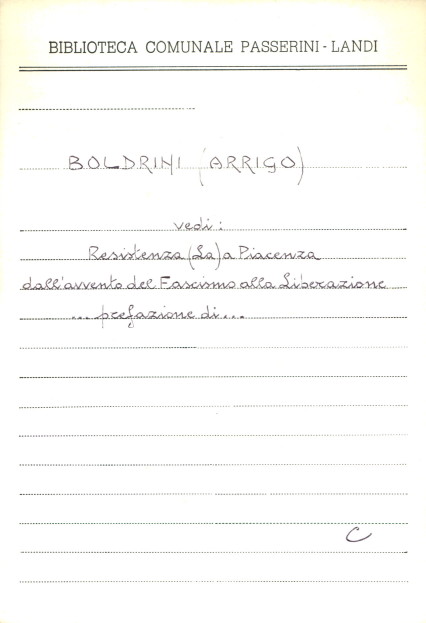 BIBLIOTECA COMUNALE PASSERINI - LANDI
BOLDRINI (ARRIGO)
vedi:
Resistenza (La) a Piacenza
dall'avvento del Fascismo alla Liberazione
... prefazione di...
C